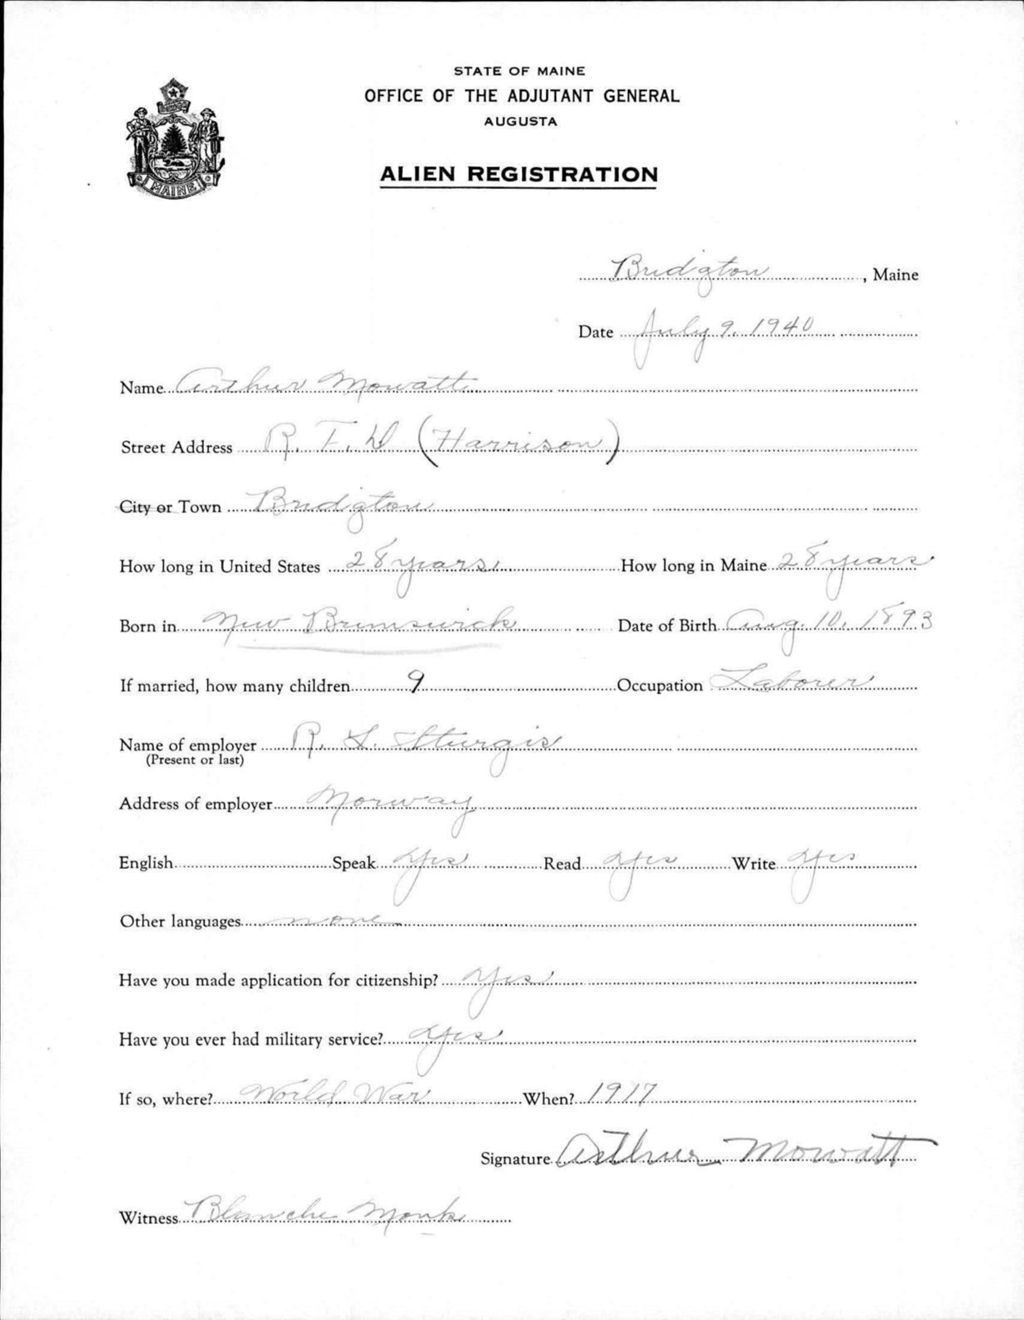 STATE OF MAINE
OFFICE OF THE ADJUTANT GENERAL
AUGUSTA
MAINE
ALIEN REGISTRATION
Bridgton, Maine
Date July 9, 1940
Name Arthur Mowatt
Street Address R. F. D (Harrison)
City or Town Bridgton
How long in United States 28 years How long in Maine 28 years
Born in New Brunswick Date of Birth Aug. 10, 1893
If married, how many children 9 Occupation Laborer
Name of employer R. L. Sturgis
(Present or last)
Address of employer Norway
English Speak Yes Read Yes Write Yes
Other languages none
Have you made application for citizenship? Yes
Have you ever had military service? Yes
If so, where? World War When? 1917
Signature Arthur Mowatt
Witness Blanche Monk